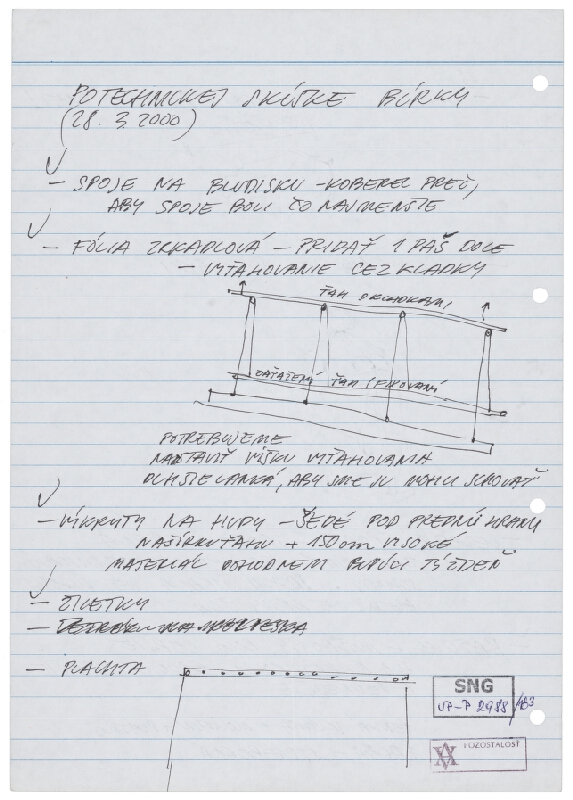 PO TECHNICKEJ SKÚŠKE BÚRKY
(28. 3. 2000)
– SPOJE NA BLUDISKU – KOBEREC PREČ,
ABY SPOJE BOLI ČO NAJMENŠIE
– FÓLIA ZRKADLOVÁ – PRIDAŤ 1 PÁS DOLE
– VYŤAHOVANIE CEZ KLADKY
ŤAH
ŤAH
POTREBUJEME
NASTAVIŤ VÝŠKU VYŤAHOVANIA
DLHŠIE LANKÁ, ABY SME JU MOHLI SCHOVAŤ
– VÝKRYTY NA HUDY – ŠEDÉ POD PREDNÚ HRANU
NA ŠÍRKU ŤAHU + 150 cm VYSOKÉ
MATERIÁL DOHODNEM BUDÚCI TÝŽDEŇ
– ŽILETKY
– PLACHTA
SNG
UP-P 2988/183
POZOSTALOSŤ